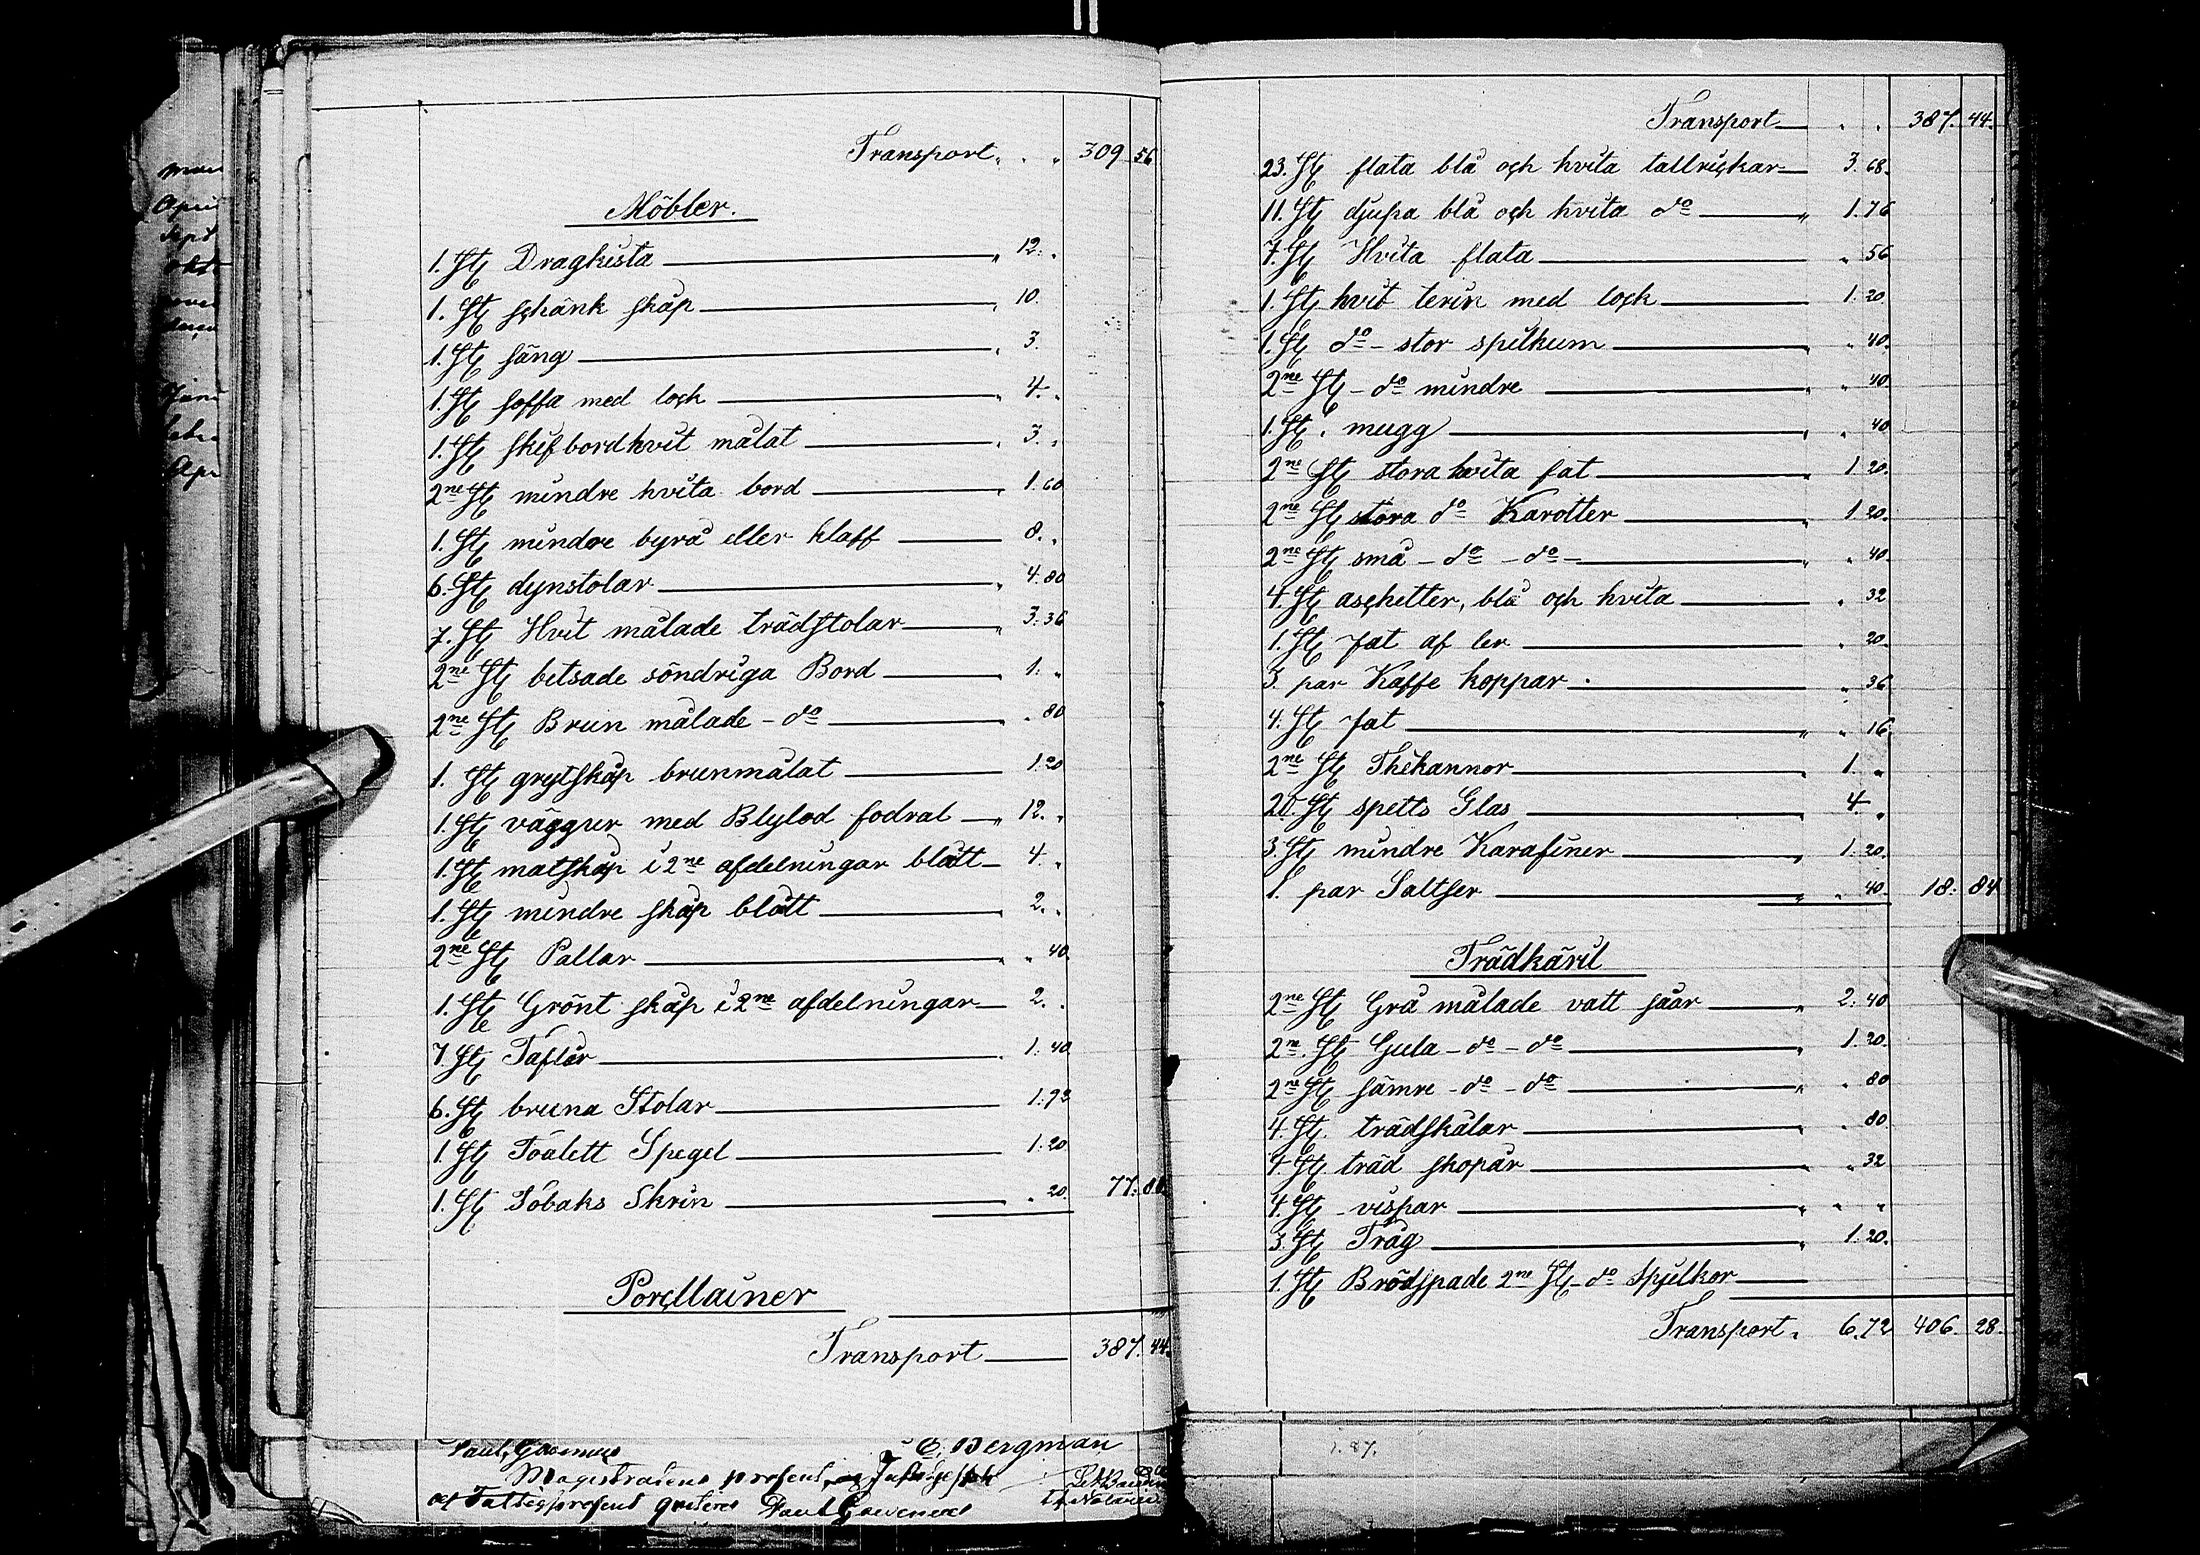 Transport „ „ 309 56
Möbler.
1. St Dragkista „ 12. „
1. St schänk skåp „ 10.
1. St säng „ 3.
1. St soffa med lock „ 4. „
1. St skifbord hvit målat „ 3. „
2ne St mindre hvita bord „ 1.60
1. St mindre byrå eller klaff 8. „
6. St dynstolar „ 4.80
7. St Hvit målade trädstolar „ 3.36
2ne St betsade söndriga Bord „ 1. „
2ne St Brun målade - do „ „ 80
1. St grytskåp brunmålat 1.20
1. St väggur med Blylod fodral „ 12. „
1. St matskåp i 2ne afdelningar blått 4. „
1. St mindre skåp blått „ 2. „
2ne St Pallar „ „ 40.
1. St Grönt skåp i 2ne afdelningar 2. „
7. St Taflor „ 1.40
6. St bruna Stolar 1.92
1. St Toalett Spegel 1.20
1. St Tobaks Skrin „ 20. 77. 88
Porcllainer
Transport 387. 44.
E. Bergman
Magistratens
Transport „ „ 387. 44.
23. St flata blå och hvita tallrickar 3.68.
11. St djupa blå och hvita do „ 1.76
7. St Hvita flata „ 56
1. St hvit terin med lock 1.20
1. St do - stor spilkum „ „ 40.
2ne St - do mindre „ „ 40
1. St. mugg „ „ 40
2ne St stora hvita fat „ 1.20.
2ne St stora do Karotter „ 1.20.
2ne St små - do - do - „ „ 40.
4. St aschetter, blå och hvita „ 32
1. St fat af ler „ 20.
3. par Kaffe koppar. „ 36
4. St fat „ „ 16.
2ne St Thekannor „ 1. „
20. St spetts Glas „ 4. „
3. St mindre Karafiner „ 1.20.
1. par Saltser „ „ 40. 18. 84
Trädkäril
2ne St Grå målade vatt såar „ 2.40
2ne. St Gula - do - do „ 1.20.
2ne St sämre - do - do „ „ 80
4. St. trädskålar „ „ 80
4. St träd skopar „ „ 32
4. St - vispar „ „ „
3. St Tråg „ 1.20.
1. St Brödspade 2ne St - do Spjelkor
Transport. 6.72 406. 28.